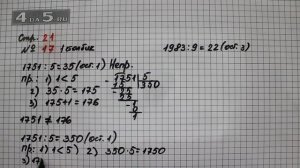 4 ДА 5.ru
Стр. 21
№ 17 1 столбик
1983:9=22(ост.3)
1751:5=35(ост.1) Непр.
пр.: 1) 1<5
2) 35·5=175
3) 175+1=176
1751≠176
1751 5
15 350
25
25
1
0
1
1751:5=350(ост.1)
Пр: 1) 1<5) 2) 350·5=1750
3) 17